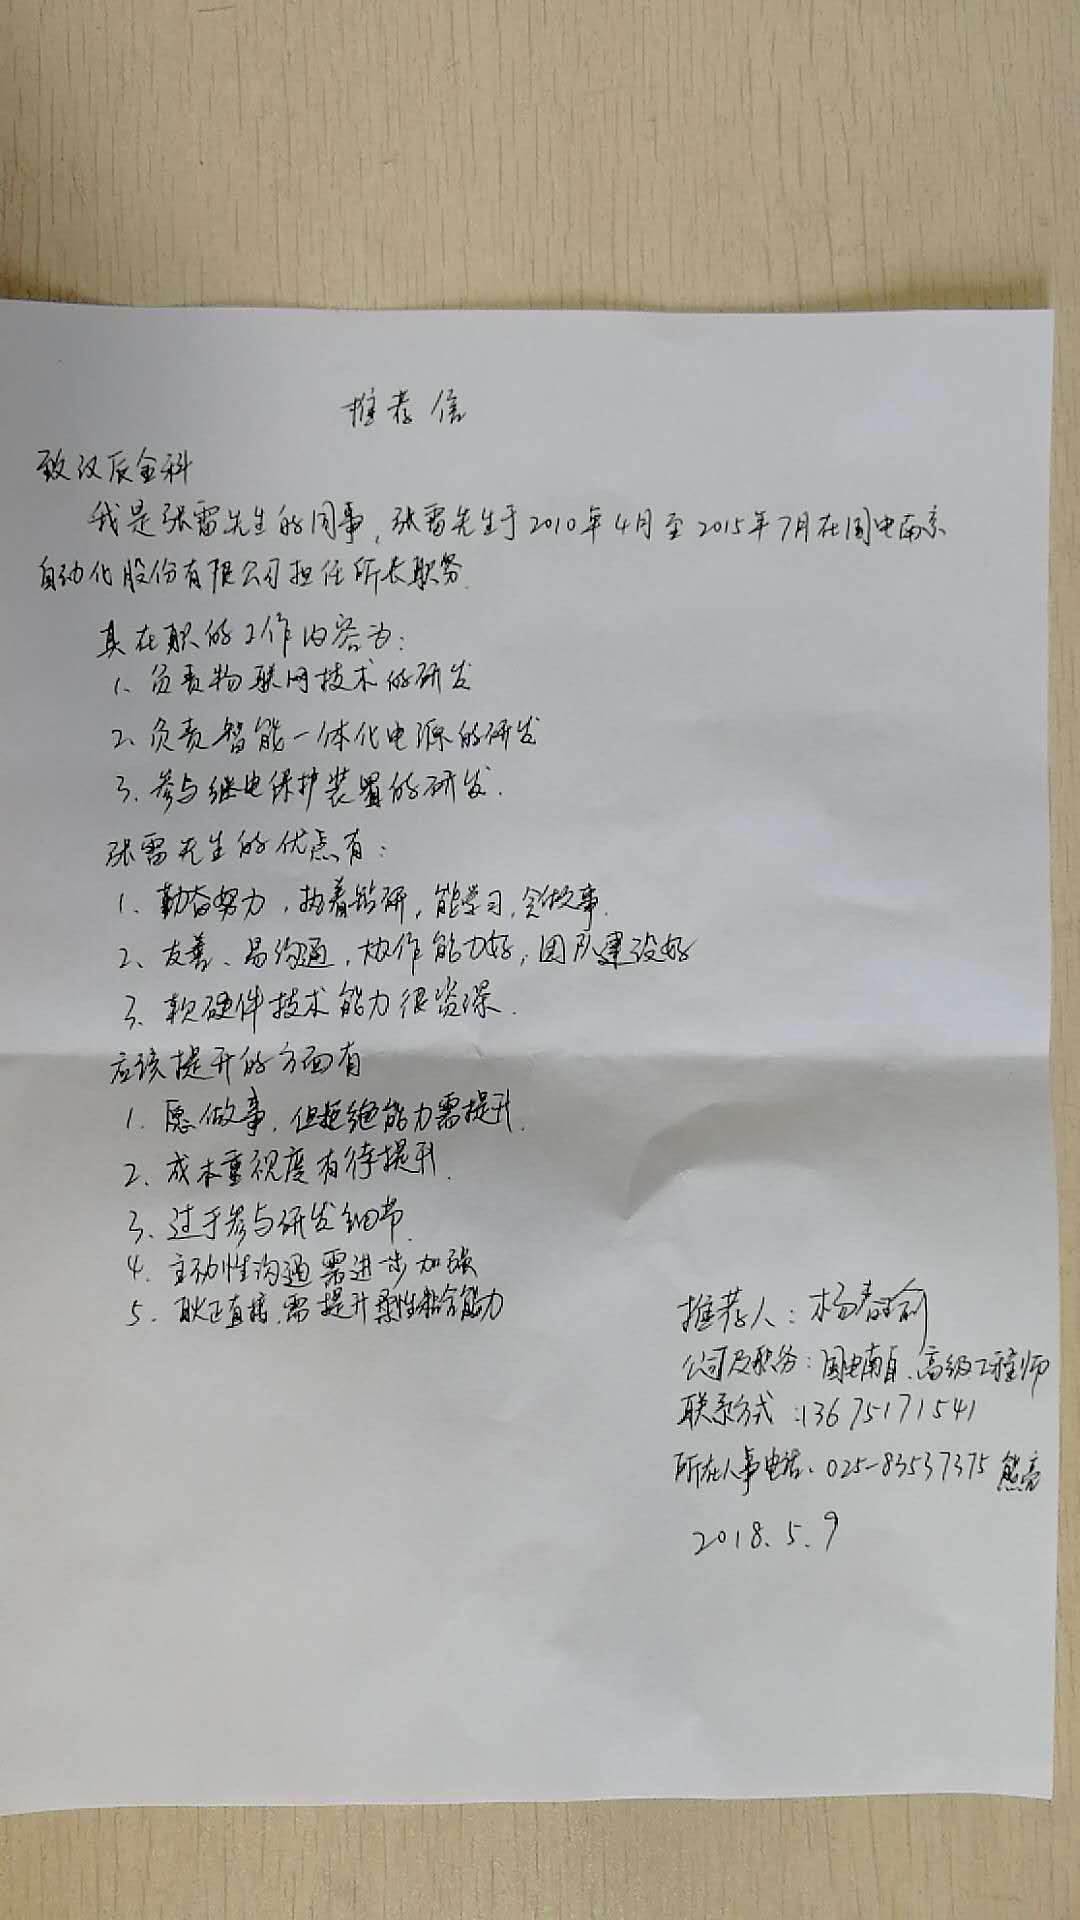 推荐信
致汉辰金科
我是张雷先生的同事，张雷先生于2010年4月至2015年7月在国电南京
自动化股份有限公司担任所长职务.
其在职的工作内容为：
1、负责物联网技术的研发
2、负责智能一体化电源的研发
3、参与继电保护装置的研发.
张雷先生的优点有：
1、勤奋努力，执着钻研，能学习，会做事.
2、友善、易沟通，协作能力好，团队建设好
3、软硬件技术能力很资深.
应该提升的方面有
1、愿做事，但拒绝能力需提升.
2、成本重视度有待提升.
3、过于参与研发细节.
4、主动性沟通需进一步加强
5、耿正直接，需提升柔性黏合能力
推荐人：杨春
公司及职务：国电南自、高级工程师
联系方式：13675171541
所在人事电话、025-83537375 熊亮
2018.5.9